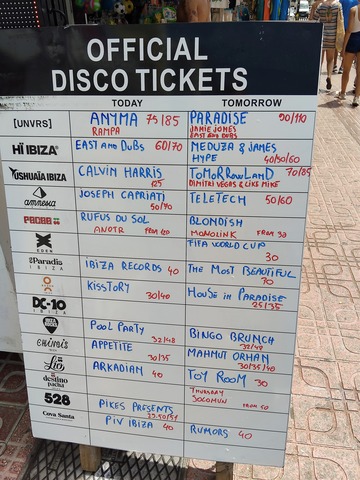 OFFICIAL
DISCO TICKETS
TODAY TOMORROW
[UNVRS] ANYMA 75/85 PARADISE 90/110
RAMPA JAMIE JONES
EAST AND DUBS
HÏ IBIZA EAST AND DUBS 60/70 MEDUZA & JAMES
HYPE 40/50/60
USHUAÏA IBIZA CALVIN HARRIS TOMORROWLAND 70/85
125 DIMITRI VEGAS & LIKE MIKE
amnesia JOSEPH CAPRIATI TELETECH 50/60
50/70
PACHA RUFUS DU SOL BLONDISH
ANOTR FROM 120 MONOLINK FROM 90
EDEN FIFA WORLD CUP
30
Paradis
IBIZA IBIZA RECORDS 40 THE MOST BEAUTIFUL
70
KISSTORY HOUSE IN PARADISE
30/40 25/35
DC-10
IBIZA
IBIZA ROCKS POOL PARTY BINGO BRUNCH
32/48 32/48
chinois APPETITE MAHMUT ORHAN
30/35 30/35/40
Lío ARKADIAN 40 TOY ROOM 30
destino
pacha THURSDAY
528 PIKES PRESENTS
Cova Santa PIV IBIZA 40 RUMORS 40